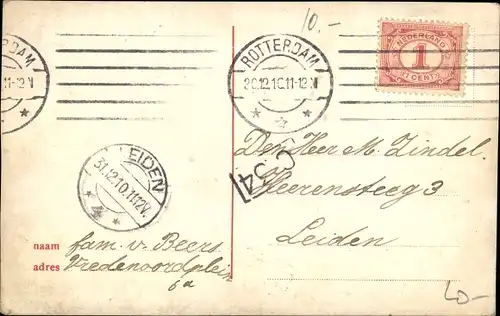 10.-
NEDERLAND
1
1 CENT
DAM
11-12 N
ROTTERDAM
30.12.10.11-12N
LEIDEN
31.12.10.11-12V.
4
34
Den Heer M. Zindel.
Heerensteeg 3
Leiden
naam fam. v. Beers
adres Vredenoordplein
6a